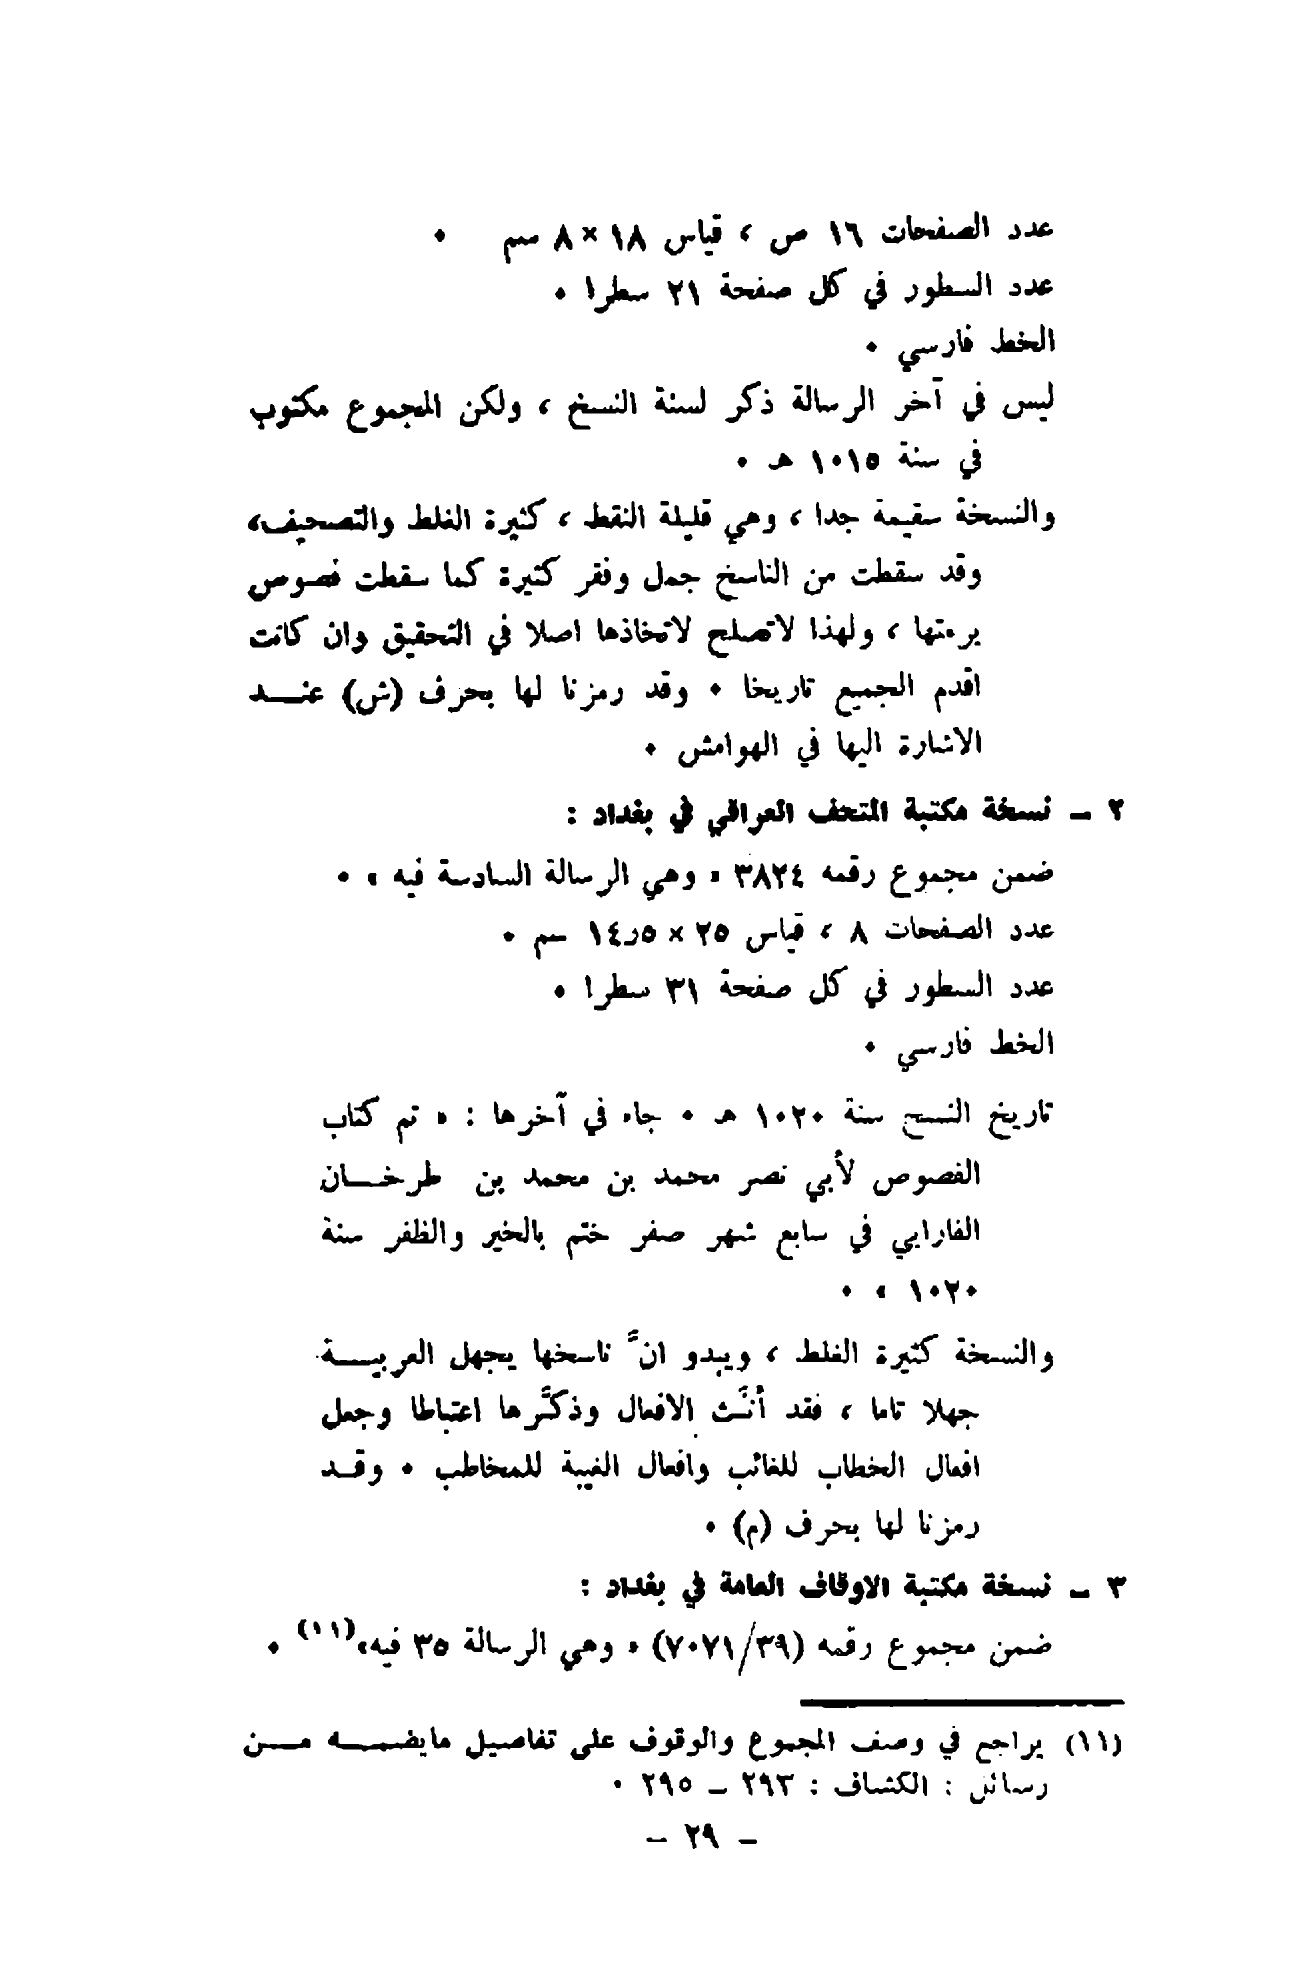 عدد الصفحات ١٦ ص ، قياس ١٨ × ٨ سم ٠
عدد السطور في كل صفحة ٢١ سطرا ٠
الخط فارسي ٠
ليس في آخر الرسالة ذكر لسنة النسخ ، ولكن المجموع مكتوب
في سنة ١٠١٥ هـ ٠
والنسخة سقيمة جدا ، وهي قليلة النقط ، كثيرة الغلط والتصحيف،
وقد سقطت من الناسخ جمل وفقر كثيرة كما سقطت فصوص
برمتها ، ولهذا لاتصلح لاتخاذها اصلا في التحقيق وان كانت
اقدم الجميع تاريخا ٠ وقد رمزنا لها بحرف (ش) عنــد
الاشارة اليها في الهوامش ٠
٢ ــ نسخة مكتبة المتحف العراقي في بغداد :
ضمن مجموع رقمه ٣٨٢٤ « وهي الرسالة السادسة فيه » ٠
عدد الصفحات ٨ ، قياس ٢٥ × ٥ر١٤ سم ٠
عدد السطور في كل صفحة ٣١ سطرا ٠
الخط فارسي ٠
تاريخ النسخ سنة ١٠٢٠ هـ ٠ جاء في آخرها : « تم كتاب
الفصوص لأبي نصر محمد بن محمد بن طرخــان
الفارابي في سابع شهر صفر ختم بالخير والظفر سنة
١٠٢٠ » ٠
والنسخة كثيرة الغلط ، ويبدو انَّ ناسخها يجهل العربيــة
جهلا تاما ، فقد أنَّث الافعال وذكَّرها اعتباطا وجعل
افعال الخطاب للغائب وافعال الغيبة للمخاطب ٠ وقــد
رمزنا لها بحرف (م) ٠
٣ ــ نسخة مكتبة الاوقاف العامة في بغداد :
ضمن مجموع رقمه (٧٠٧١/٣٩) « وهي الرسالة ٣٥ فيه»(١١) ٠
(١١) يراجع في وصف المجموع والوقوف على تفاصيل مايضمــه مــن
رسائل : الكشاف : ٢٩٣ ــ ٢٩٥ ٠
ــ ٢٩ ــ